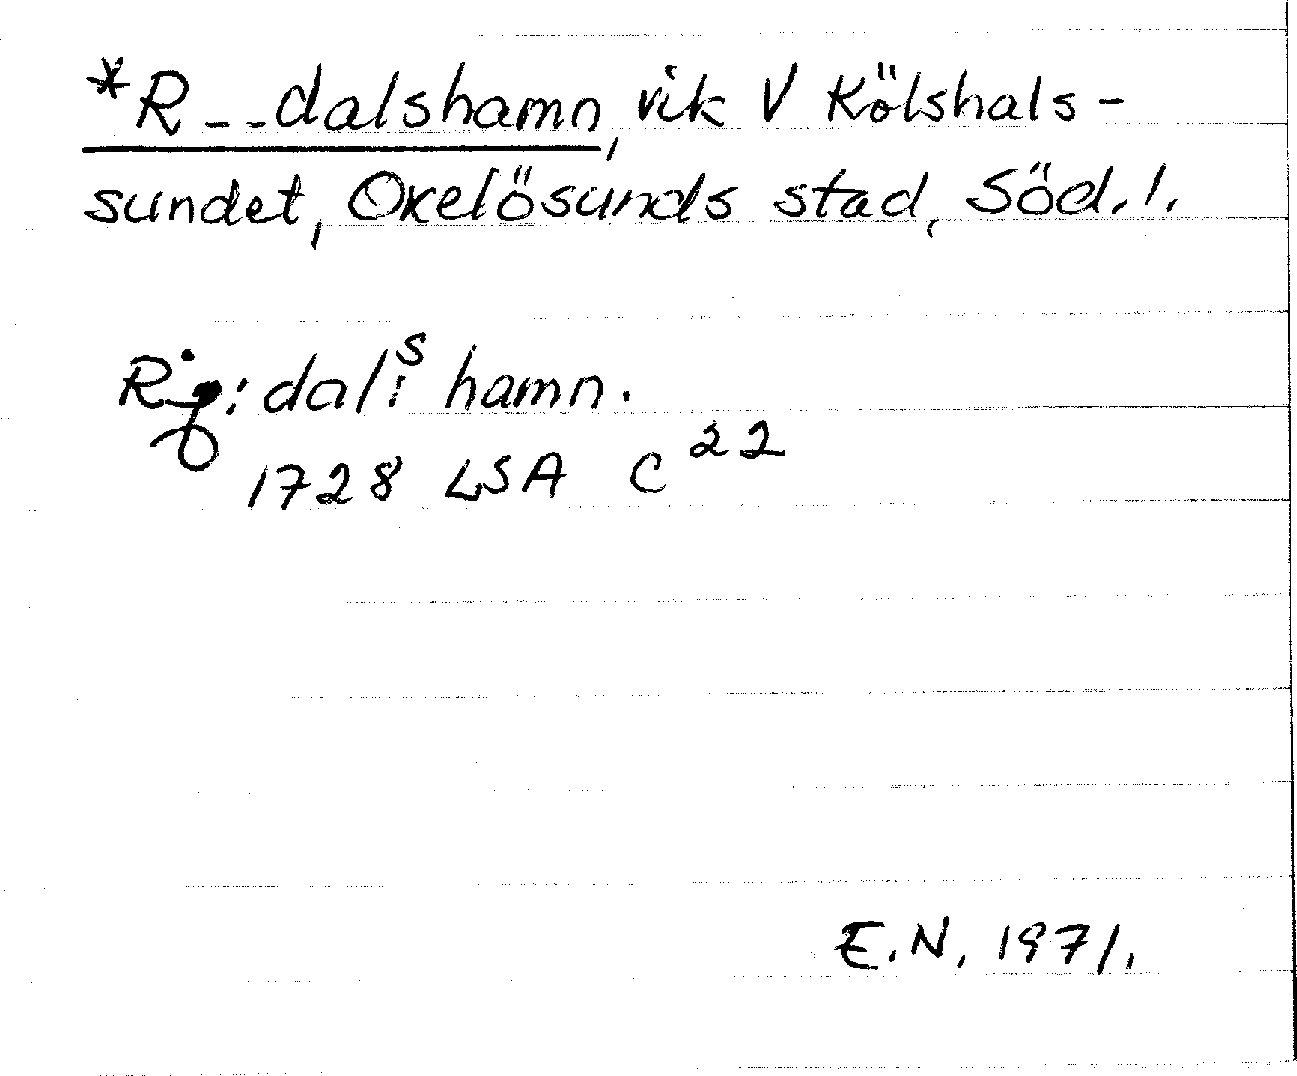 *R_ _dalshamn, vik V Kölshals-
sundet, Oxelösunds stad, Söd. l.
dal:s hamn.
1728 LSA C22
E.N. 1971.